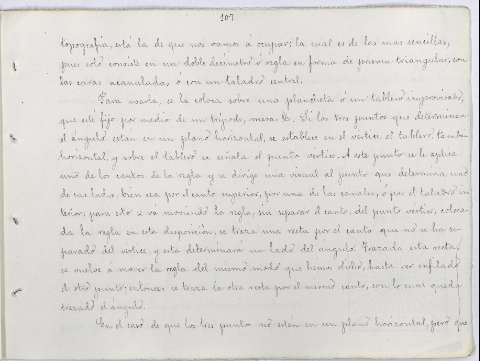 107
topografia, está la de que nos vamos á ocupar; la cual es de las mas sencillas,
pues solo consiste en un doble decimetro ó regla en forma de prisma triangular, con
las caras acanaladas, ó con un taladro central.
Para usarla, se la coloca sobre una plancheta ó un tablero improvisado,
que esté fijo por medio de un trípode, mesa &. Si los tres puntos que determinan
el ángulo están en un plano horizontal, se establece en el vertice el tablero, tambien
horizontal, y sobre el tablero se señala el punto vertice. A este punto se le aplica
uno de los cantos de la regla y se dirige una visual al punto que determina uno
de sus lados, bien sea por el canto superior, por una de las canales, ó por el taladro in
terior; para esto se va moviendo la regla, sin separar el canto, del punto vertice; coloca-
da la regla en esta disposición, se traza una recta por el canto que no se ha se-
parado del vertice y esta determinará un lado del angulo. Trazada esta recta,
se vuelve á mover la regla del mismo modo que hemos dicho, hasta ver enfilado
el otro punto; entonces se traza la otra recta por el mismo canto, con lo cual queda
trazado el ángulo.
En el caso de que los tres puntos no estén en un plano horizontal, pero que